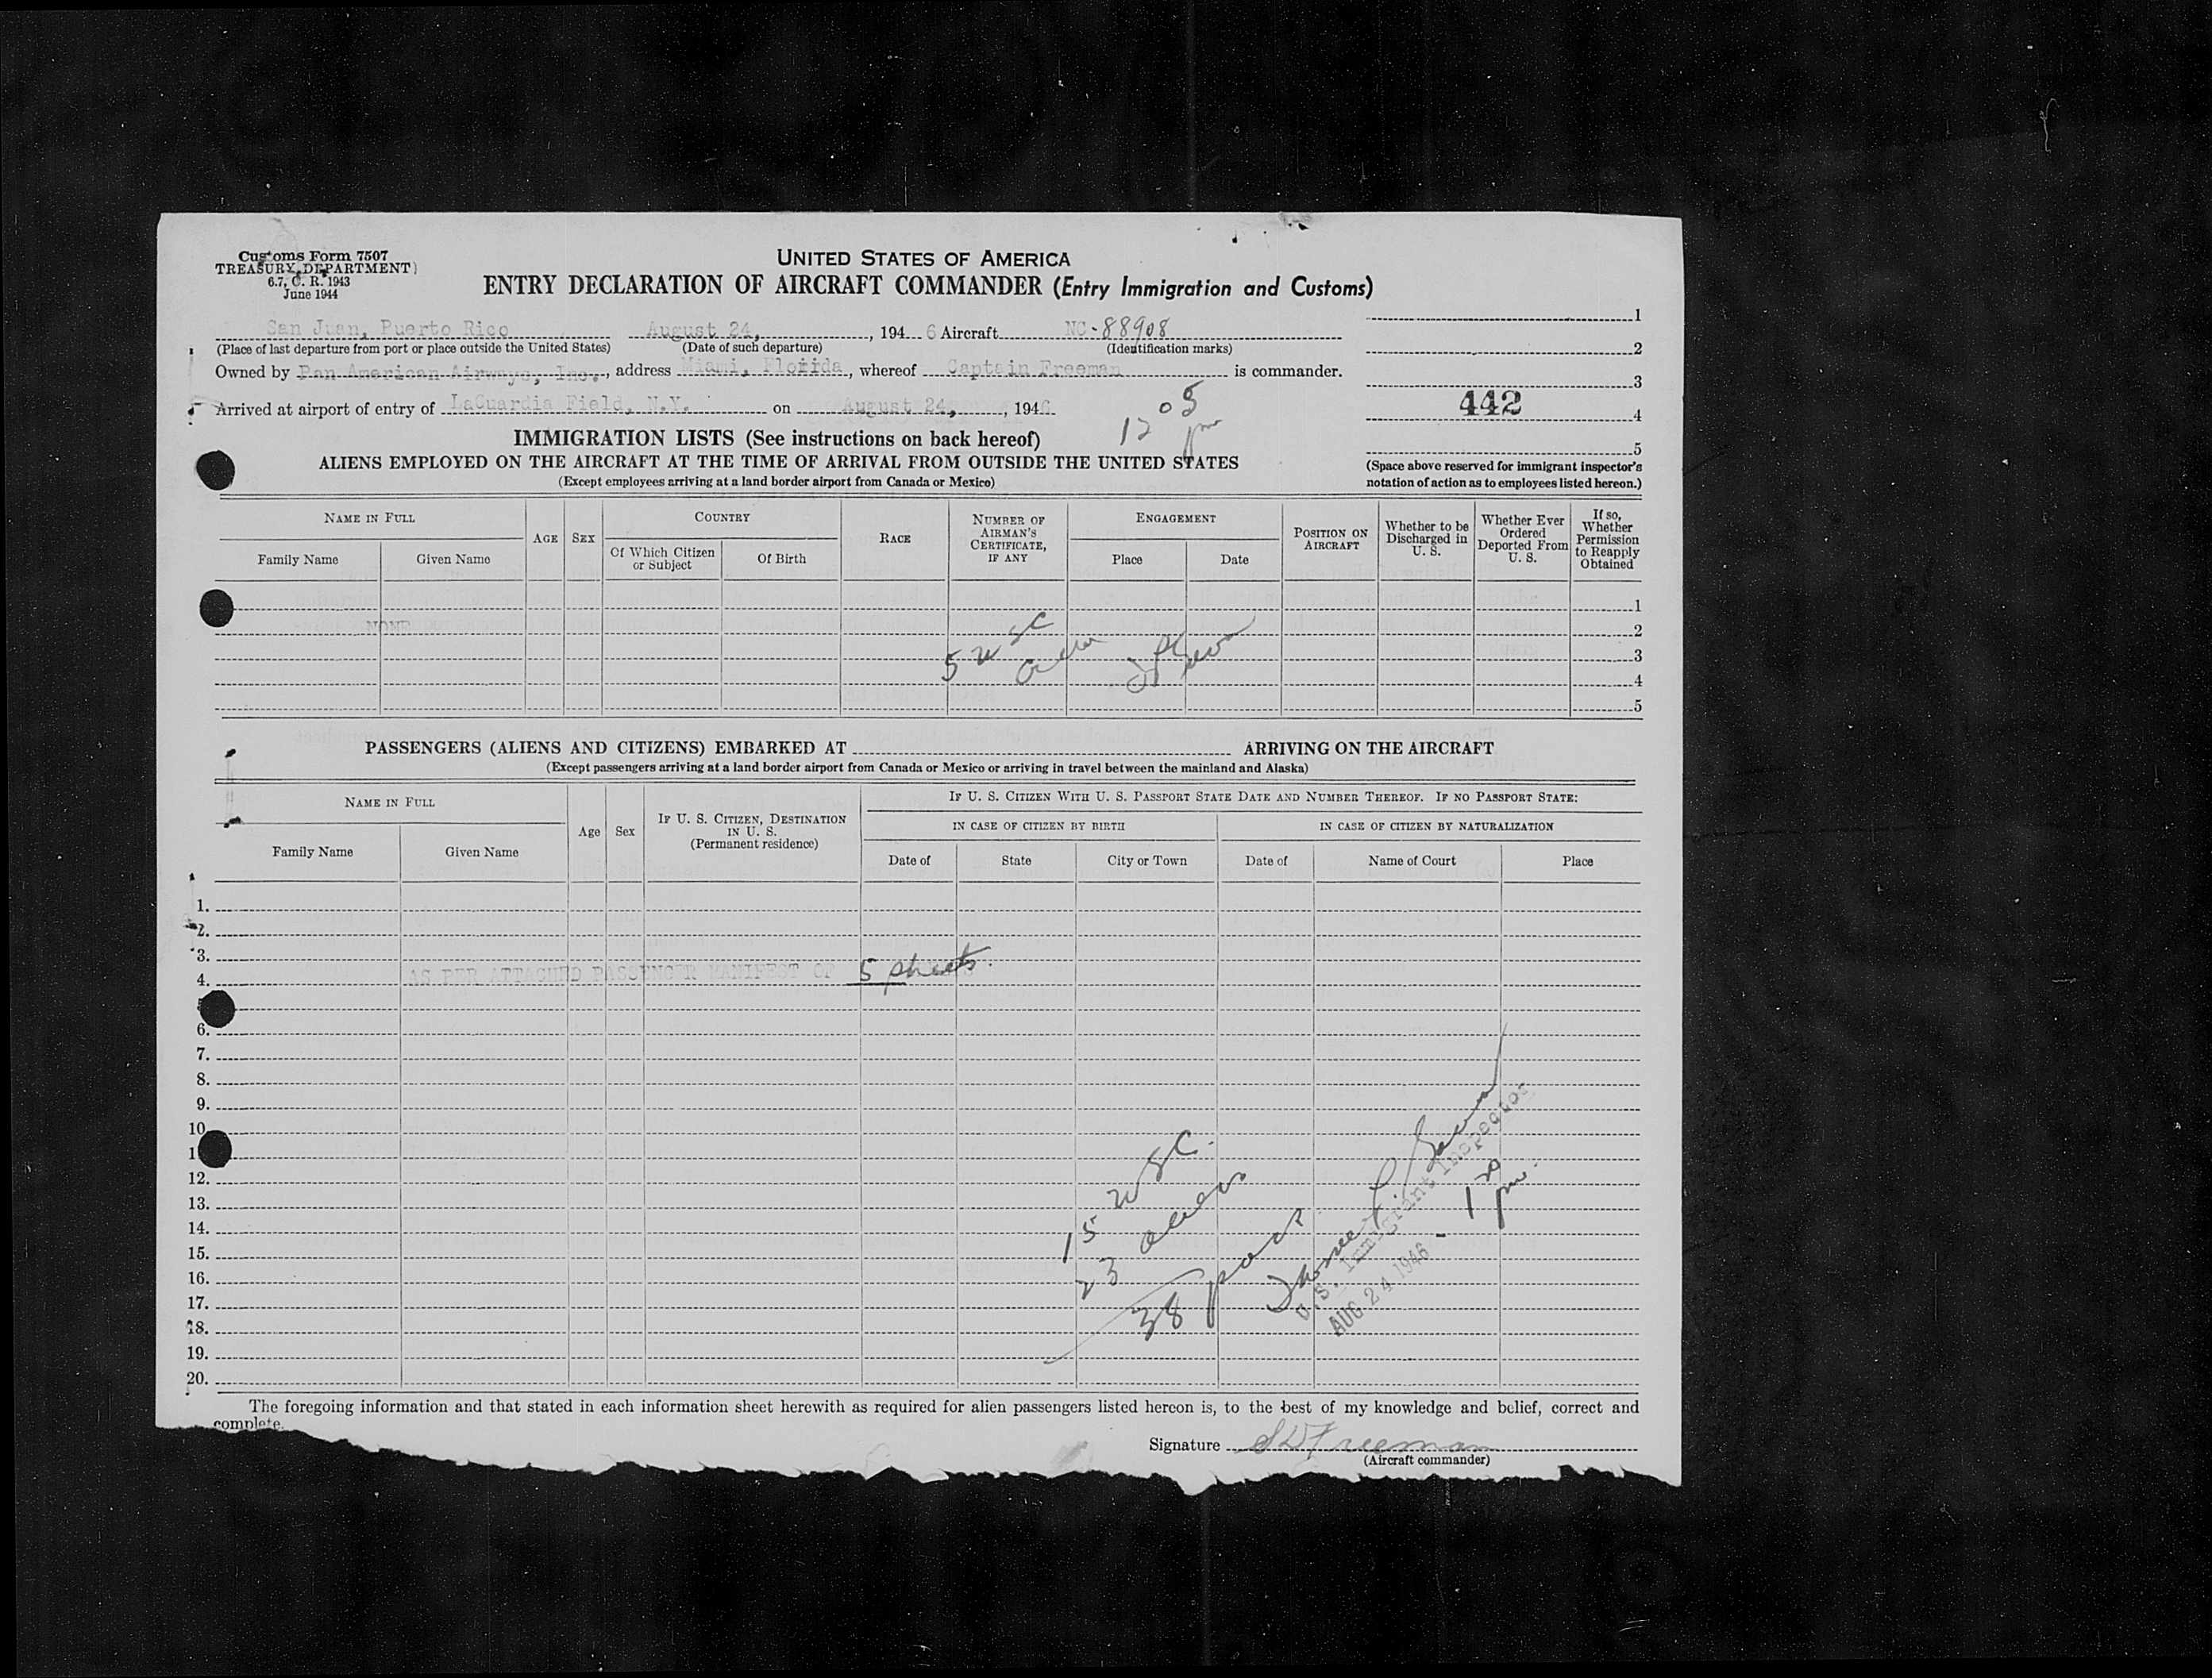 Customs Form 7507
TREASURY DEPARTMENT
6.7, C. R. 1943
June 1944
UNITED STATES OF AMERICA
ENTRY DECLARATION OF AIRCRAFT COMMANDER (Entry Immigration and Customs)
San Juan, Puerto Rico August 24, , 194 6 Aircraft NC-88908
(Place of last departure from port or place outside the United States) (Date of such departure) (Identification marks)
Owned by Pan American Airways, Inc., address Miami, Florida, whereof Captain Freeman is commander.
Arrived at airport of entry of LaGuardia Field, N.Y. on August 24, , 1946
12 05 pm
1
2
3
442 4
5
(Space above reserved for immigrant inspector's
notation of action as to employees listed hereon.)
IMMIGRATION LISTS (See instructions on back hereof)
ALIENS EMPLOYED ON THE AIRCRAFT AT THE TIME OF ARRIVAL FROM OUTSIDE THE UNITED STATES
(Except employees arriving at a land border airport from Canada or Mexico)
NAME IN FULL
Family Name Given Name
AGE SEX
COUNTRY
Of Which Citizen or Subject Of Birth
RACE
NUMBER OF AIRMAN'S CERTIFICATE, IF ANY
ENGAGEMENT
Place Date
POSITION ON AIRCRAFT
Whether to be Discharged in U. S.
Whether Ever Ordered Deported From U. S.
If so, Whether Permission to Reapply Obtained
1
NONE 2
3
4
5
5 USC
crew
PASSENGERS (ALIENS AND CITIZENS) EMBARKED AT ARRIVING ON THE AIRCRAFT
(Except passengers arriving at a land border airport from Canada or Mexico or arriving in travel between the mainland and Alaska)
NAME IN FULL
Family Name Given Name
Age Sex
IF U. S. CITIZEN, DESTINATION IN U. S. (Permanent residence)
IF U. S. CITIZEN WITH U. S. PASSPORT STATE DATE AND NUMBER THEREOF. IF NO PASSPORT STATE:
IN CASE OF CITIZEN BY BIRTH IN CASE OF CITIZEN BY NATURALIZATION
Date of State City or Town Date of Name of Court Place
1.
2.
3.
4. AS PER ATTACHED PASSENGER MANIFEST OF 5 sheets.
6.
7.
8.
9.
10
1
12.
13.
14.
15.
16.
17.
18.
19.
20.
15 USC.
23 aliens
38 pass
U.S. Immigrant Inspector
AUG 24 1946
1 20 pm.
The foregoing information and that stated in each information sheet herewith as required for alien passengers listed hereon is, to the best of my knowledge and belief, correct and
complete.
Signature S D Freeman
(Aircraft commander)